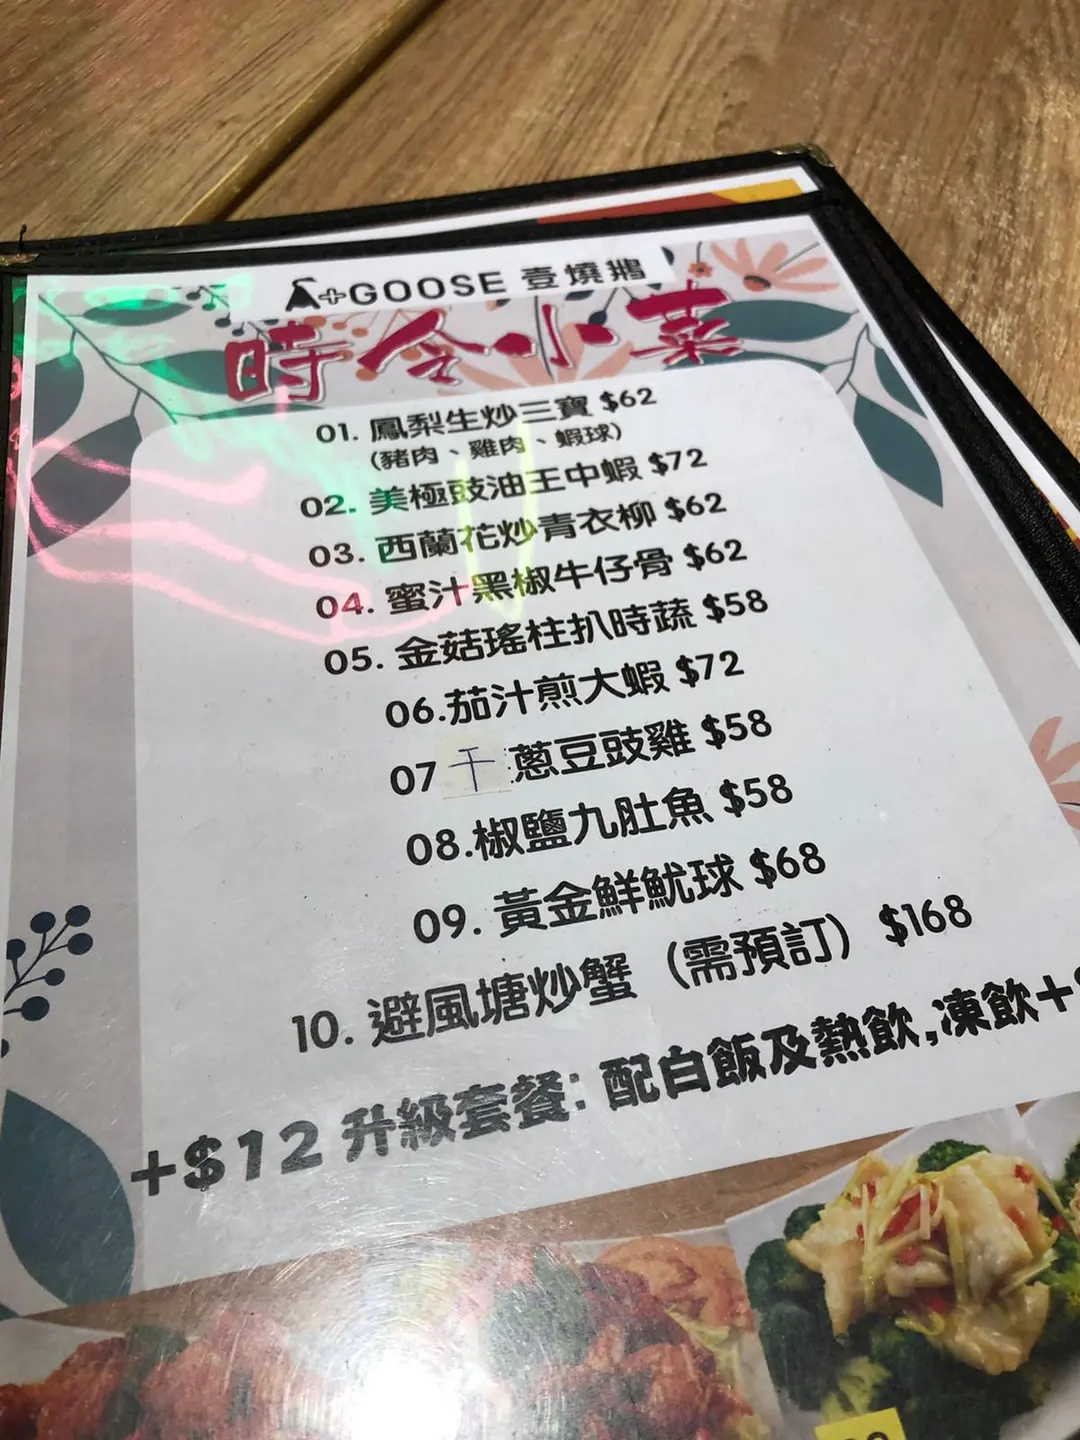 A+GOOSE 壹燒鵝
時令小菜
01. 鳳梨生炒三寶 $62
(豬肉、雞肉、蝦球)
02. 美極豉油王中蝦 $72
03. 西蘭花炒青衣柳 $62
04. 蜜汁黑椒牛仔骨 $62
05. 金菇瑤柱扒時蔬 $58
06.茄汁煎大蝦 $72
07 干蔥豆豉雞 $58
08.椒鹽九肚魚 $58
09. 黃金鮮魷球 $68
10. 避風塘炒蟹（需預訂） $168
+$12 升級套餐: 配白飯及熱飲,凍飲+